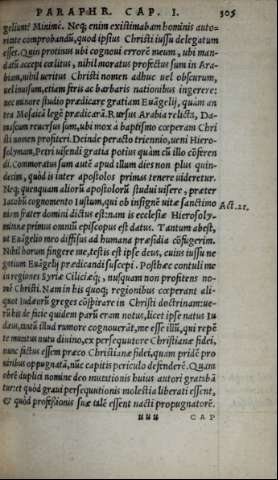 PARAPHR. CAP. I. 305
gelium? Minimè. Neq; enim existimabam hominis autoritate
comprobandū, quod ipsius Christi iussu delegatum
esset. Quin protinus ubi cognoui errorē meum, ubi mandatū
accepi cœlitus, nihil moratus profectus sum in Arabiam,
nihil ueritus Christi nomen adhuc uel obscurum,
uel inuisum, etiam feris ac barbaris nationibus ingerere:
nec minore studio prædicare gratiam Euāgelij, quam antea
Mosaicā legē prædicarā. Rursus Arabia relicta, Damascum
reuersus sum, ubi mox à baptismo cœperam Christi
nomen profiteri. Deinde peracto triennio, ueni Hierosolymam,
Petri uisendi gratia potius quàm cū illo cōferendi.
Commoratus sum autē apud illum dies non plus quindecim,
quòd is inter apostolos primas tenere uideretur.
Neq; quenquam aliorū apostolorū studui uisere, præter
Iacobū cognomento Iustum, qui ob insignē uitæ sanctimoniam
Act. 21.
frater domini dictus est: nam is ecclesiæ Hierosolymitanæ
primus omniū episcopus est datus. Tantum abest,
ut Euāgelio meo diffisus ad humana præsidia cōfugerim.
Nihil horum fingere me, testis est ipse deus, cuius iussu negotium
Euāgelij prædicandi suscepi. Posthæc contuli me
in regiones Syriæ Ciliciæq;, nusquam non profitens nomē
Christi. Nam in his quoq; regionibus cœperant aliquot
Iudæorū greges cōspirare in Christi doctrinam: uerū
his de facie quidem parū eram notus, licet ipse natus Iudæus,
tantū illud rumore cognouerāt, me esse illū, qui repēte
mutatus nutu diuino, ex persequutore Christianæ fidei,
nunc factus essem præco Christianæ fidei, quam pridē pro
uiribus oppugnatā, nūc capitis periculo defenderē. Quamobrē
duplici nomine deo mutationis huius autori gratabātur:
et quòd graui persequutionis molestia liberati essent,
& quòd professionis suæ talē essent nacti propugnatorē.
uuu CAP